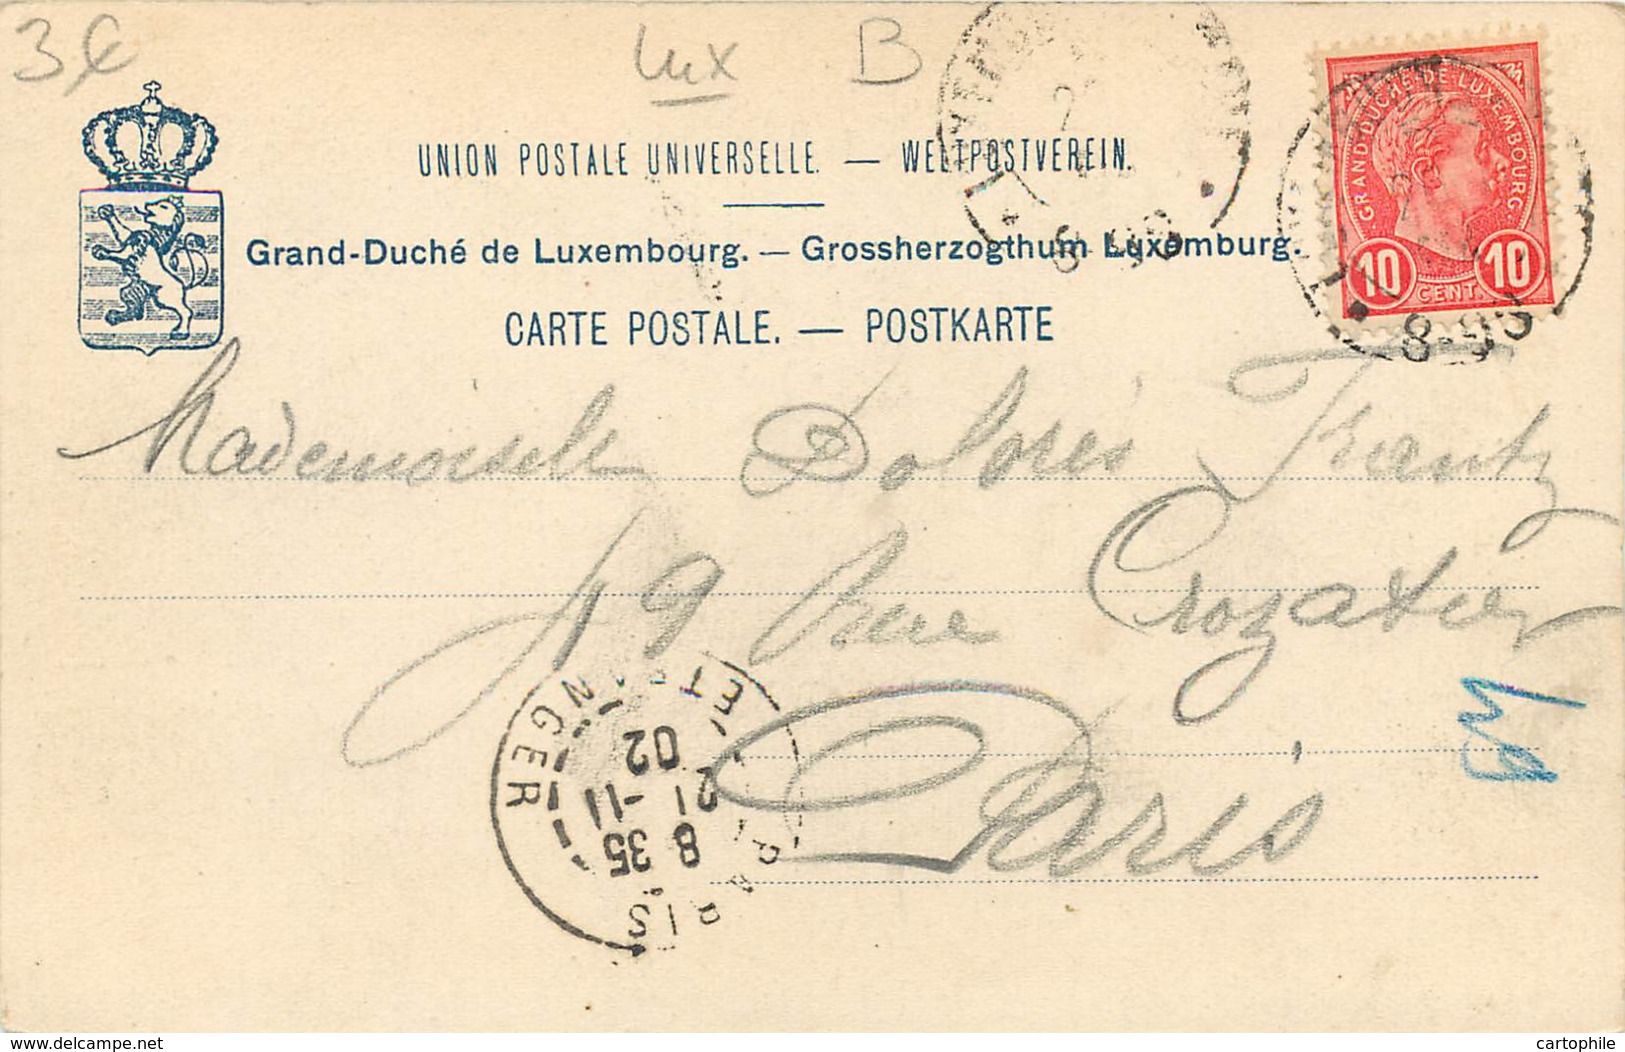 3€
Lux B
UNION POSTALE UNIVERSELLE. — WELTPOSTVEREIN.
Grand-Duché de Luxembourg. — Grossherzogthum Luxemburg.
CARTE POSTALE. — POSTKARTE
GRAND-DUCHÉ-DE-LUXEMBOURG.
10 CENT. 10
8-9S
Mademoiselle Dolorès Frantz
49 Rue Crozatier
Paris
PARIS
ETRANGER
8 35
21-11
02
delcampe.net
cartophile